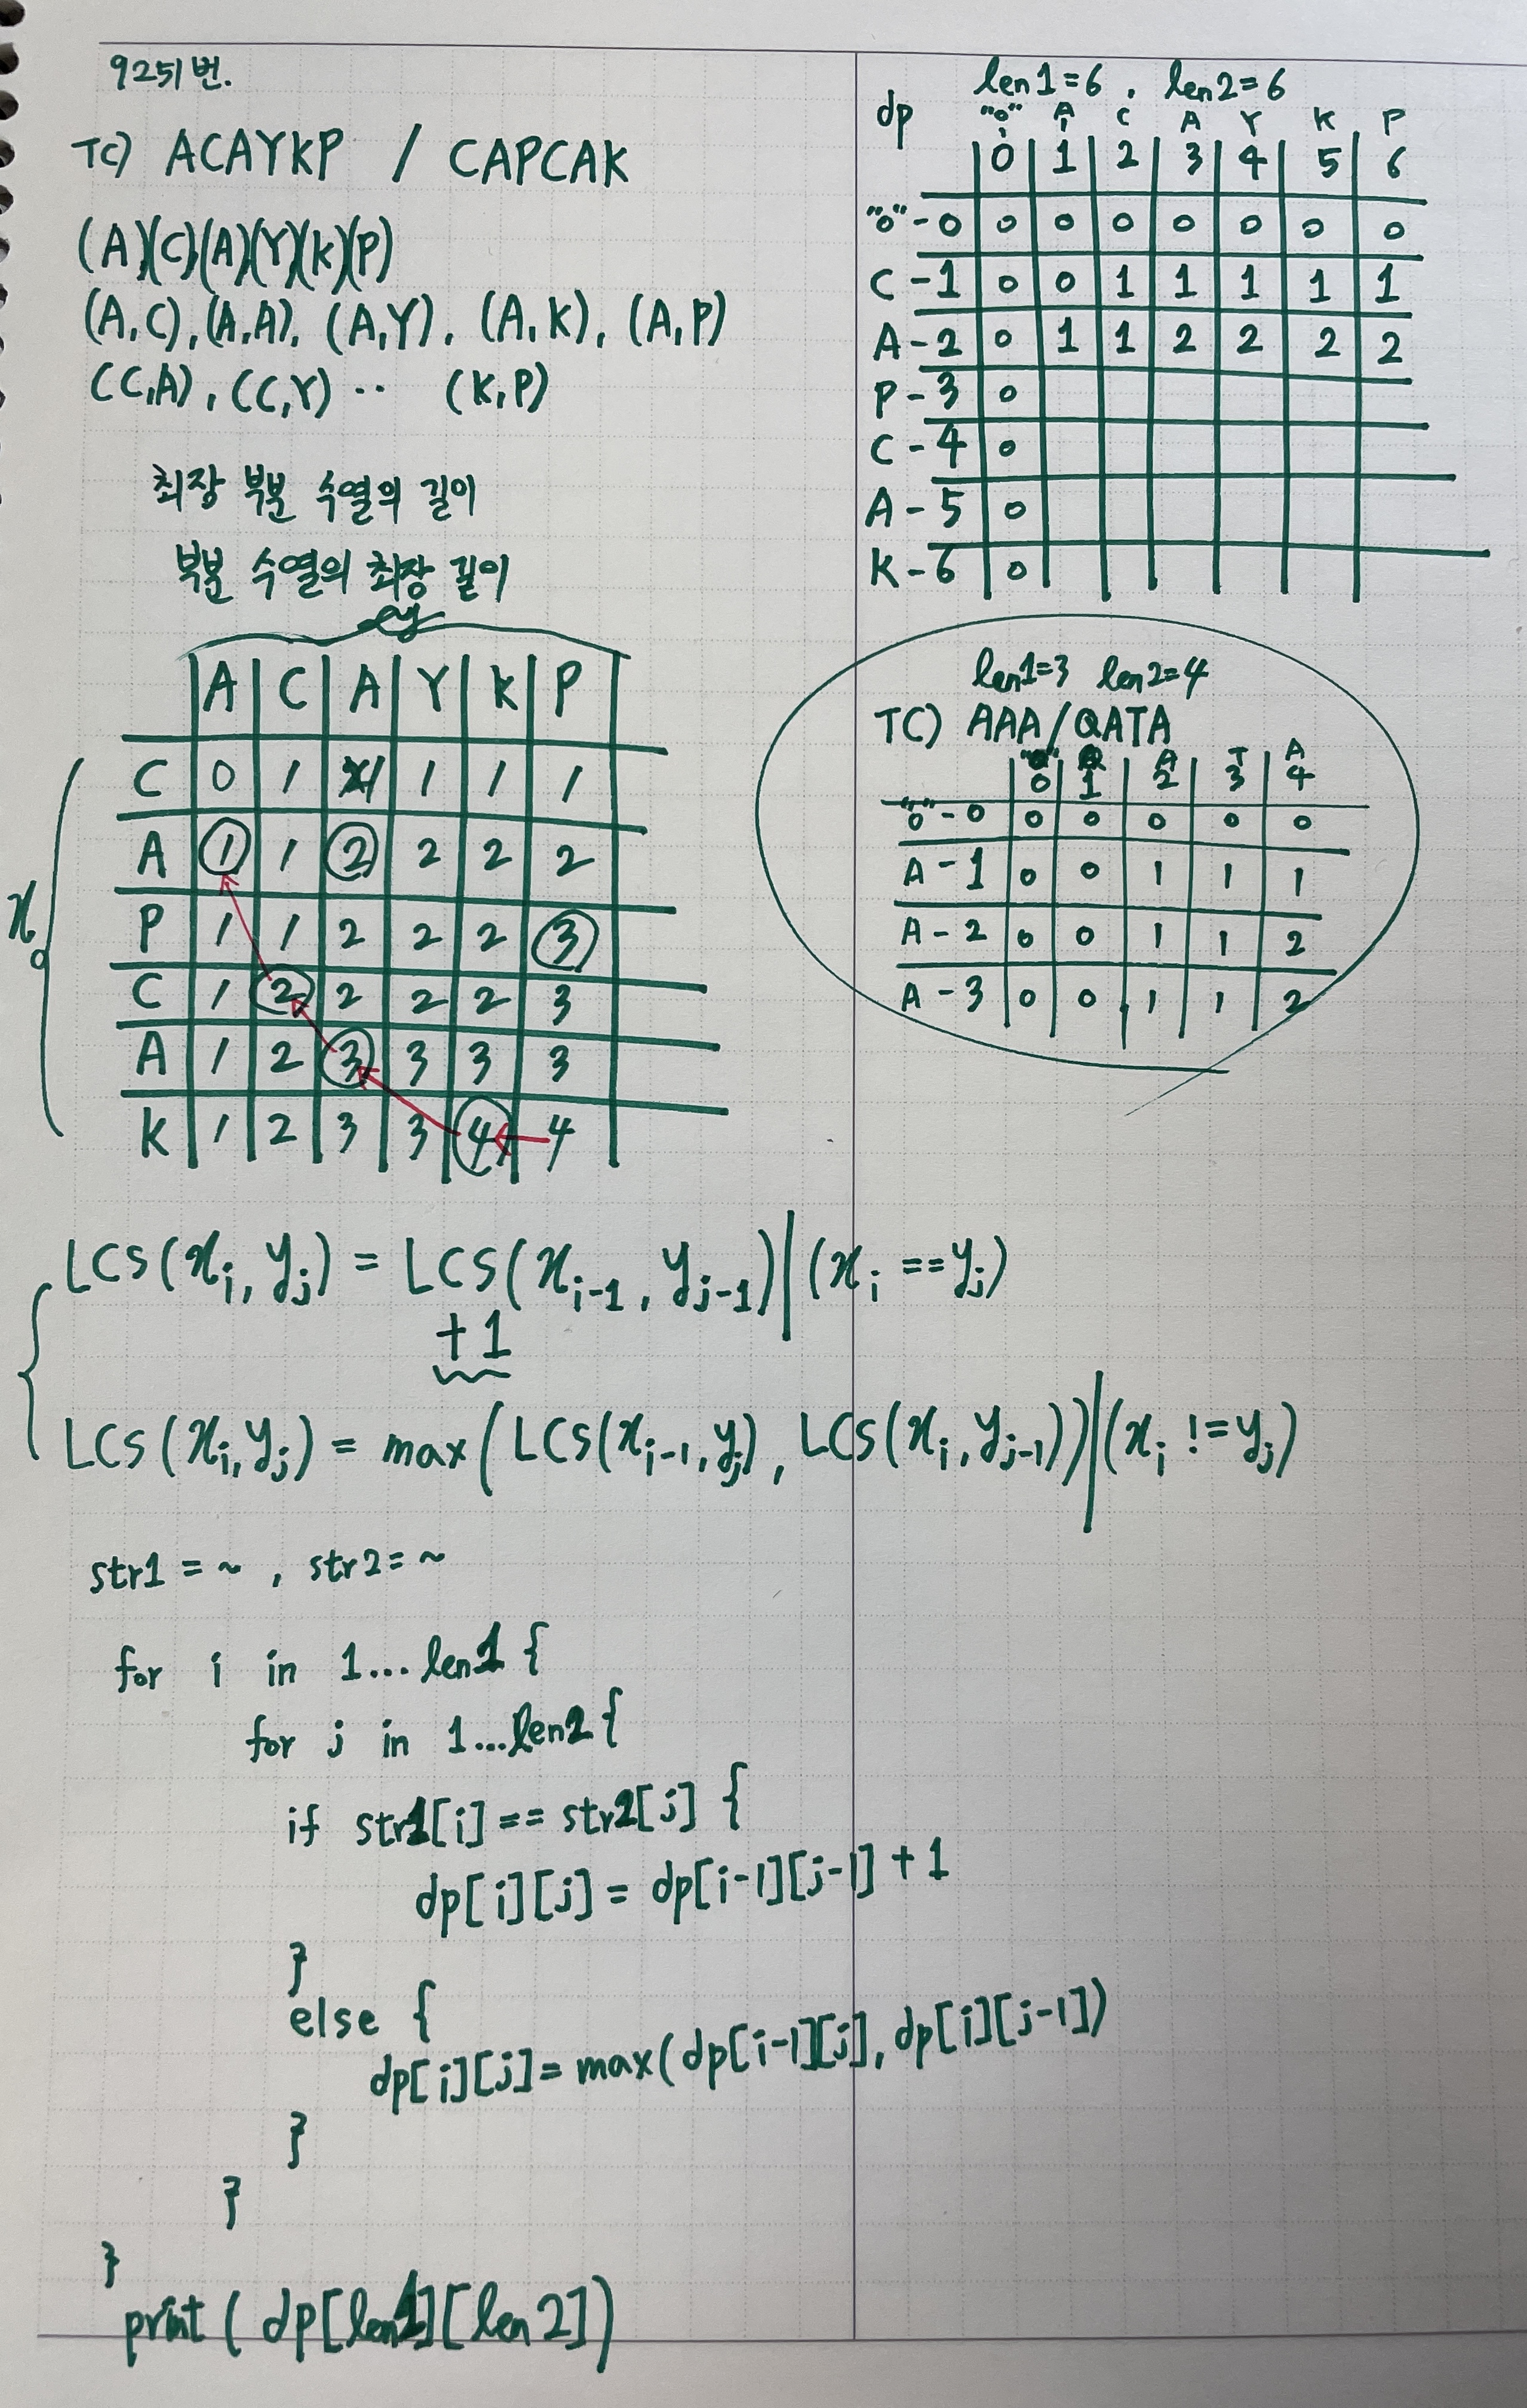 9251번.
TC) ACAYKP / CAPCAK
(A)(C)(A)(Y)(K)(P)
(A,C),(A,A), (A,Y), (A,K), (A,P)
(C,A), (C,Y) ·· (K,P)
최장 부분 수열의 길이
부분 수열의 최장 길이
y
A C A Y K P
C 0 1 1 1 1 1
A 1 1 2 2 2 2
x
P 1 1 2 2 2 3
C 1 2 2 2 2 3
A 1 2 3 3 3 3
K 1 2 3 3 4 4
LCS(xi, yj) = LCS(xi-1, yj-1) | (xi == yj)
+1
LCS(xi, yj) = max(LCS(xi-1, yj), LCS(xi, yj-1)) | (xi != yj)
str1 = ~ , str2 = ~
for i in 1... len1 {
for j in 1...len2 {
if str1[i] == str2[j] {
dp[i][j] = dp[i-1][j-1] + 1
}
else {
dp[i][j] = max(dp[i-1][j], dp[i][j-1])
}
}
}
print ( dp[len1][len2])
len1=6 , len2=6
dp "0" A C A Y K P
0 1 2 3 4 5 6
"0"-0 0 0 0 0 0 0 0
C-1 0 0 1 1 1 1 1
A-2 0 1 1 2 2 2 2
P-3 0
C-4 0
A-5 0
K-6 0
len1=3 len2=4
TC) AAA/QATA
"0" Q A T A
0 1 2 3 4
"0"-0 0 0 0 0 0
A-1 0 0 1 1 1
A-2 0 0 1 1 2
A-3 0 0 1 1 2